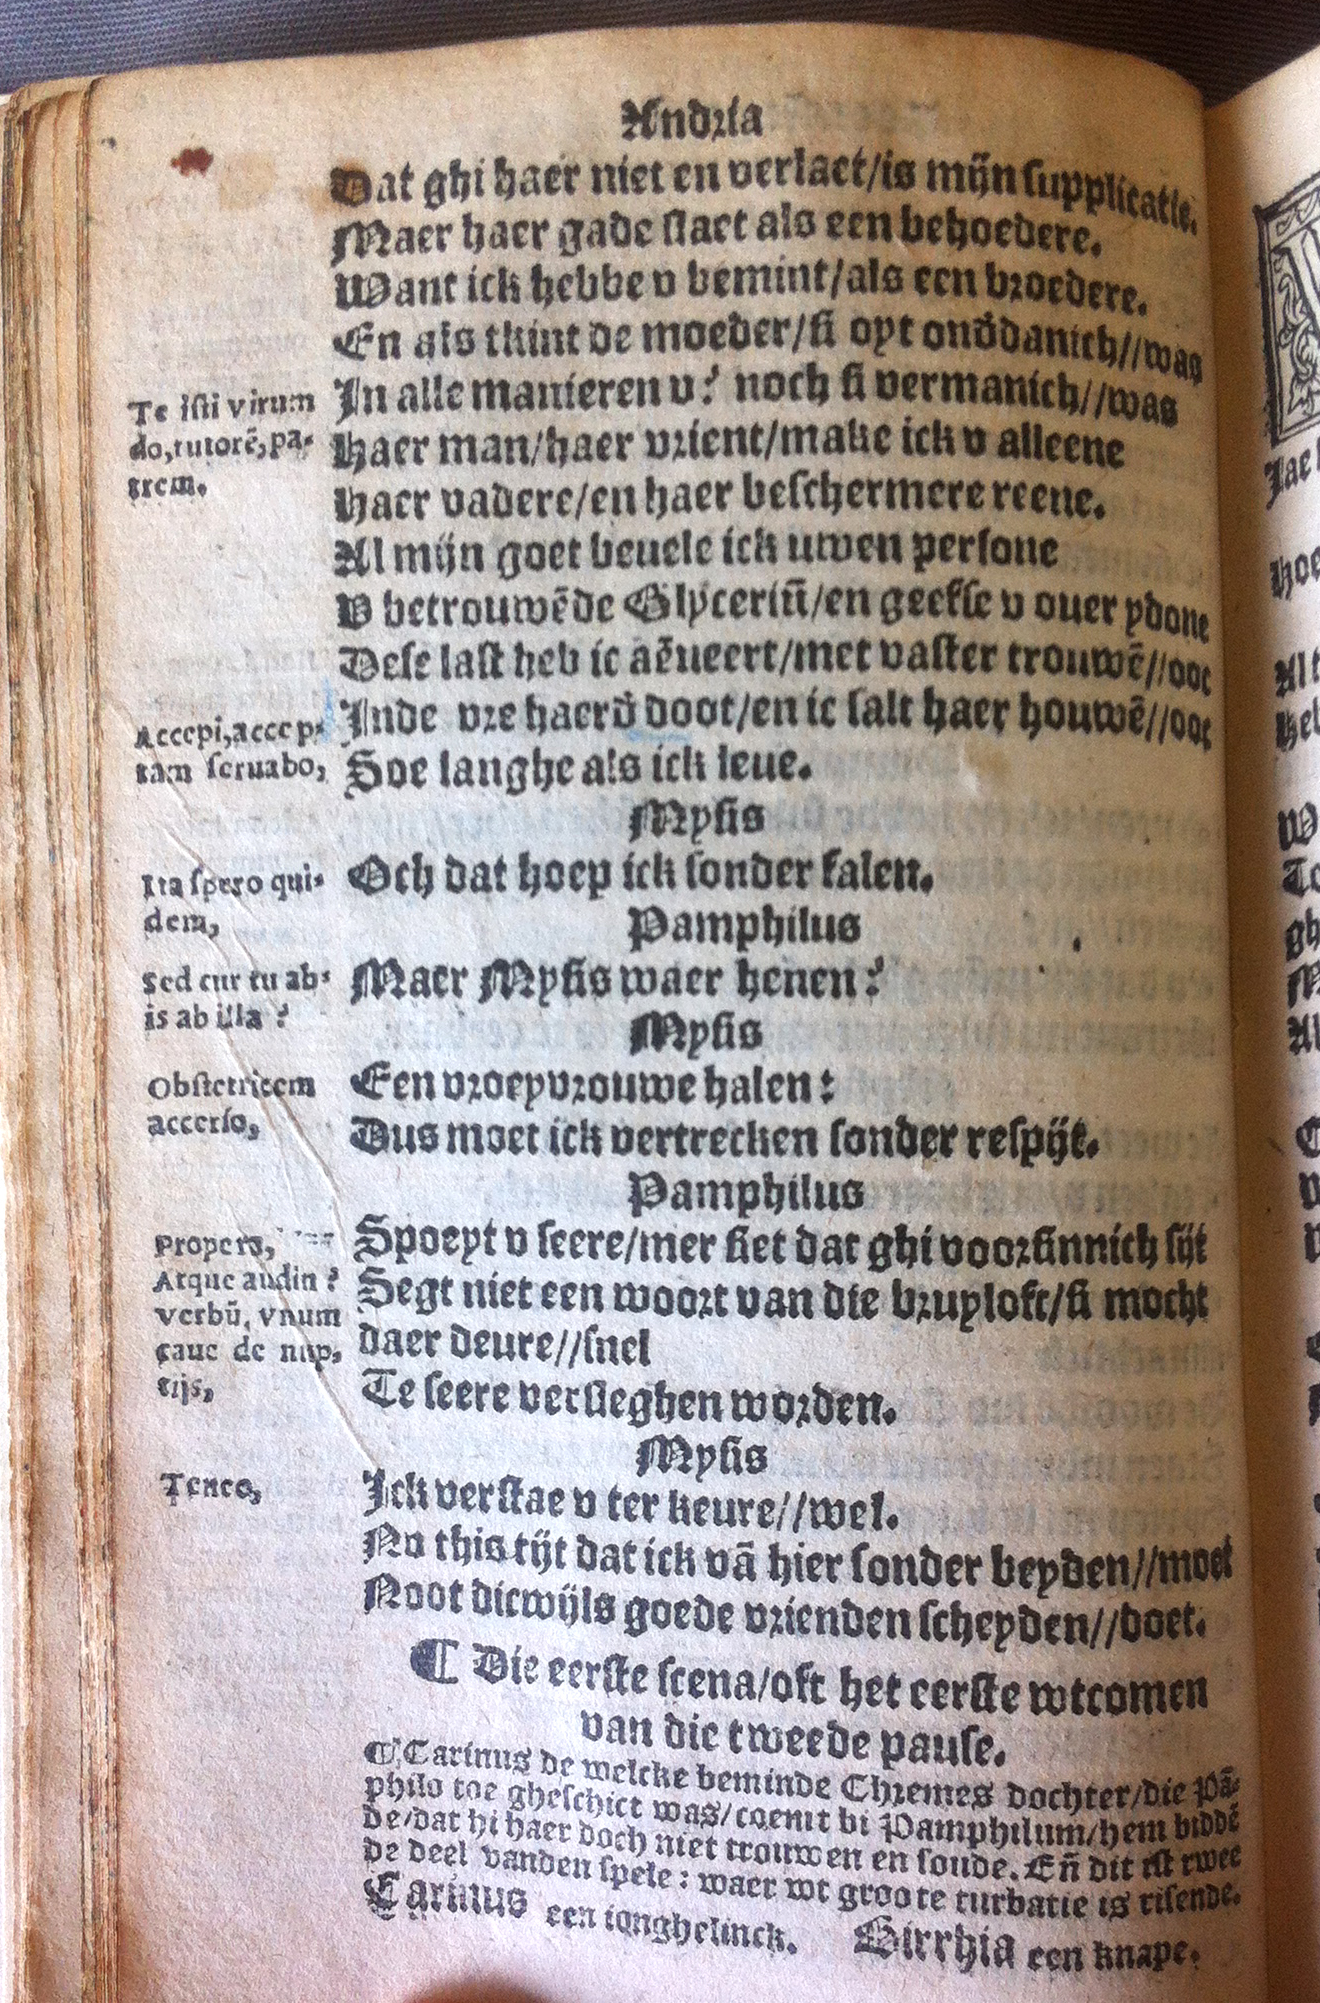 Andria
Dat ghi haer niet en verlaet/is mijn supplicatie.
Maer haer gade slaet als een behoedere.
Want ick hebbe v bemint/als een broedere.
En als tkint de moeder/si oyt onddanich//was
Te isti virum
do, tutorē, pa-
trem.
In alle manieren v? noch si vermanich//was
Haer man/haer vrient/make ick v alleene
Haer vadere/en haer beschermere reene.
Al mijn goet beuele ick uwen persone
V betrouwēde Glyceriū/en geefse v ouer ydone
Dese last heb ic aēueert/met vaster trouwē//ooc
Accepi, accep-
tam seruabo,
Inde vre haerd doot/en ic salt haer houwē//ooc
Soe langhe als ick leue.
Mysis
Ita spero qui-
dem,
Och dat hoep ick sonder falen.
Pamphilus
Sed cur tu ab-
is ab illa?
Maer Mysis waer henen?
Mysis
Obstetricem
accerso,
Een vroeyvrouwe halen:
Dus moet ick vertrecken sonder respijt.
Pamphilus
Propera,
Atque audin?
verbū, vnum
caue de nup,
tijs,
Spoeyt v seere/mer siet dat ghi voorsinnich sijt
Segt niet een woort van die bruyloft/si mocht
daer deure//snel
Te seere verslieghen worden.
Mysis
Teneo,
Ick verstae v ter keure//wel.
Nu this tijt dat ick vā hier sonder beyden//moet
Noot dicwijls goede vrienden scheyden//doet.
¶ Die eerste scena/oft het eerste wtcomen
van die tweede pause.
¶ Carinus de welcke beminde Chremes dochter/die Pā-
philo toe gheschict was/coemt bi Pamphilum/hem biddē
de/dat hi haer doch niet trouwen en soude. Eñ dit ist twee
de deel vanden spele: waer wt groote turbatie is risende.
Carinus een ionghelinck. Birrhia een knape.